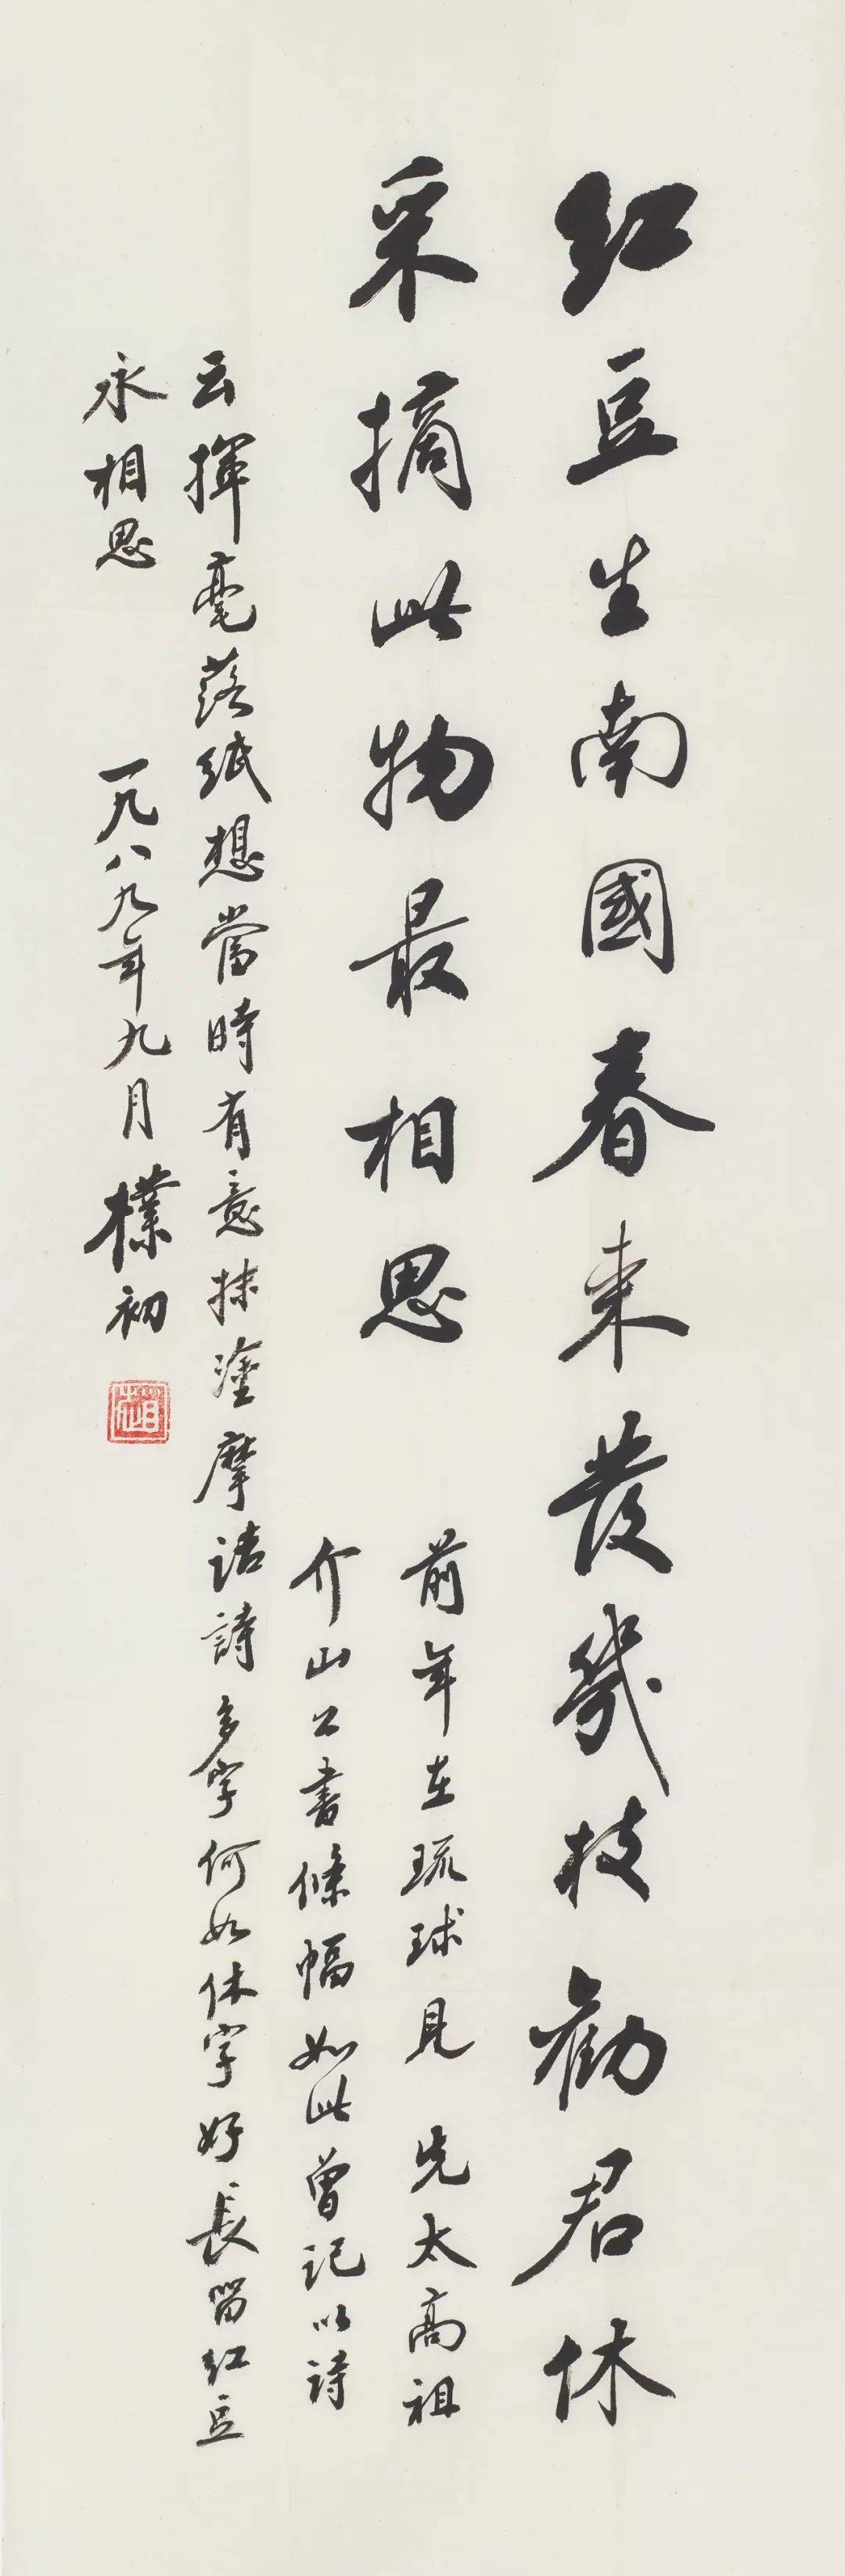 红豆生南國春来發幾枝勸君休
采摘此物最相思
前年在琉球見 先太高祖
介山公書條幅如此曾記以詩
云揮毫落紙想當時有意抹塗摩詰詩多字何如休字好長留红豆
永相思 一九八九年九月 樸初